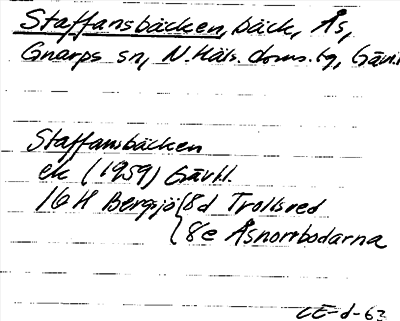 Staffansbäcken, bäck, Ås,
Gnarps sn, N. Häls. doms.tg, Gävl.
Staffansbäcken
ek (1959) Gävhl.
16H Bergsjö { 8d Trollsved
8e Åsnorrbodarna
CE-d-63